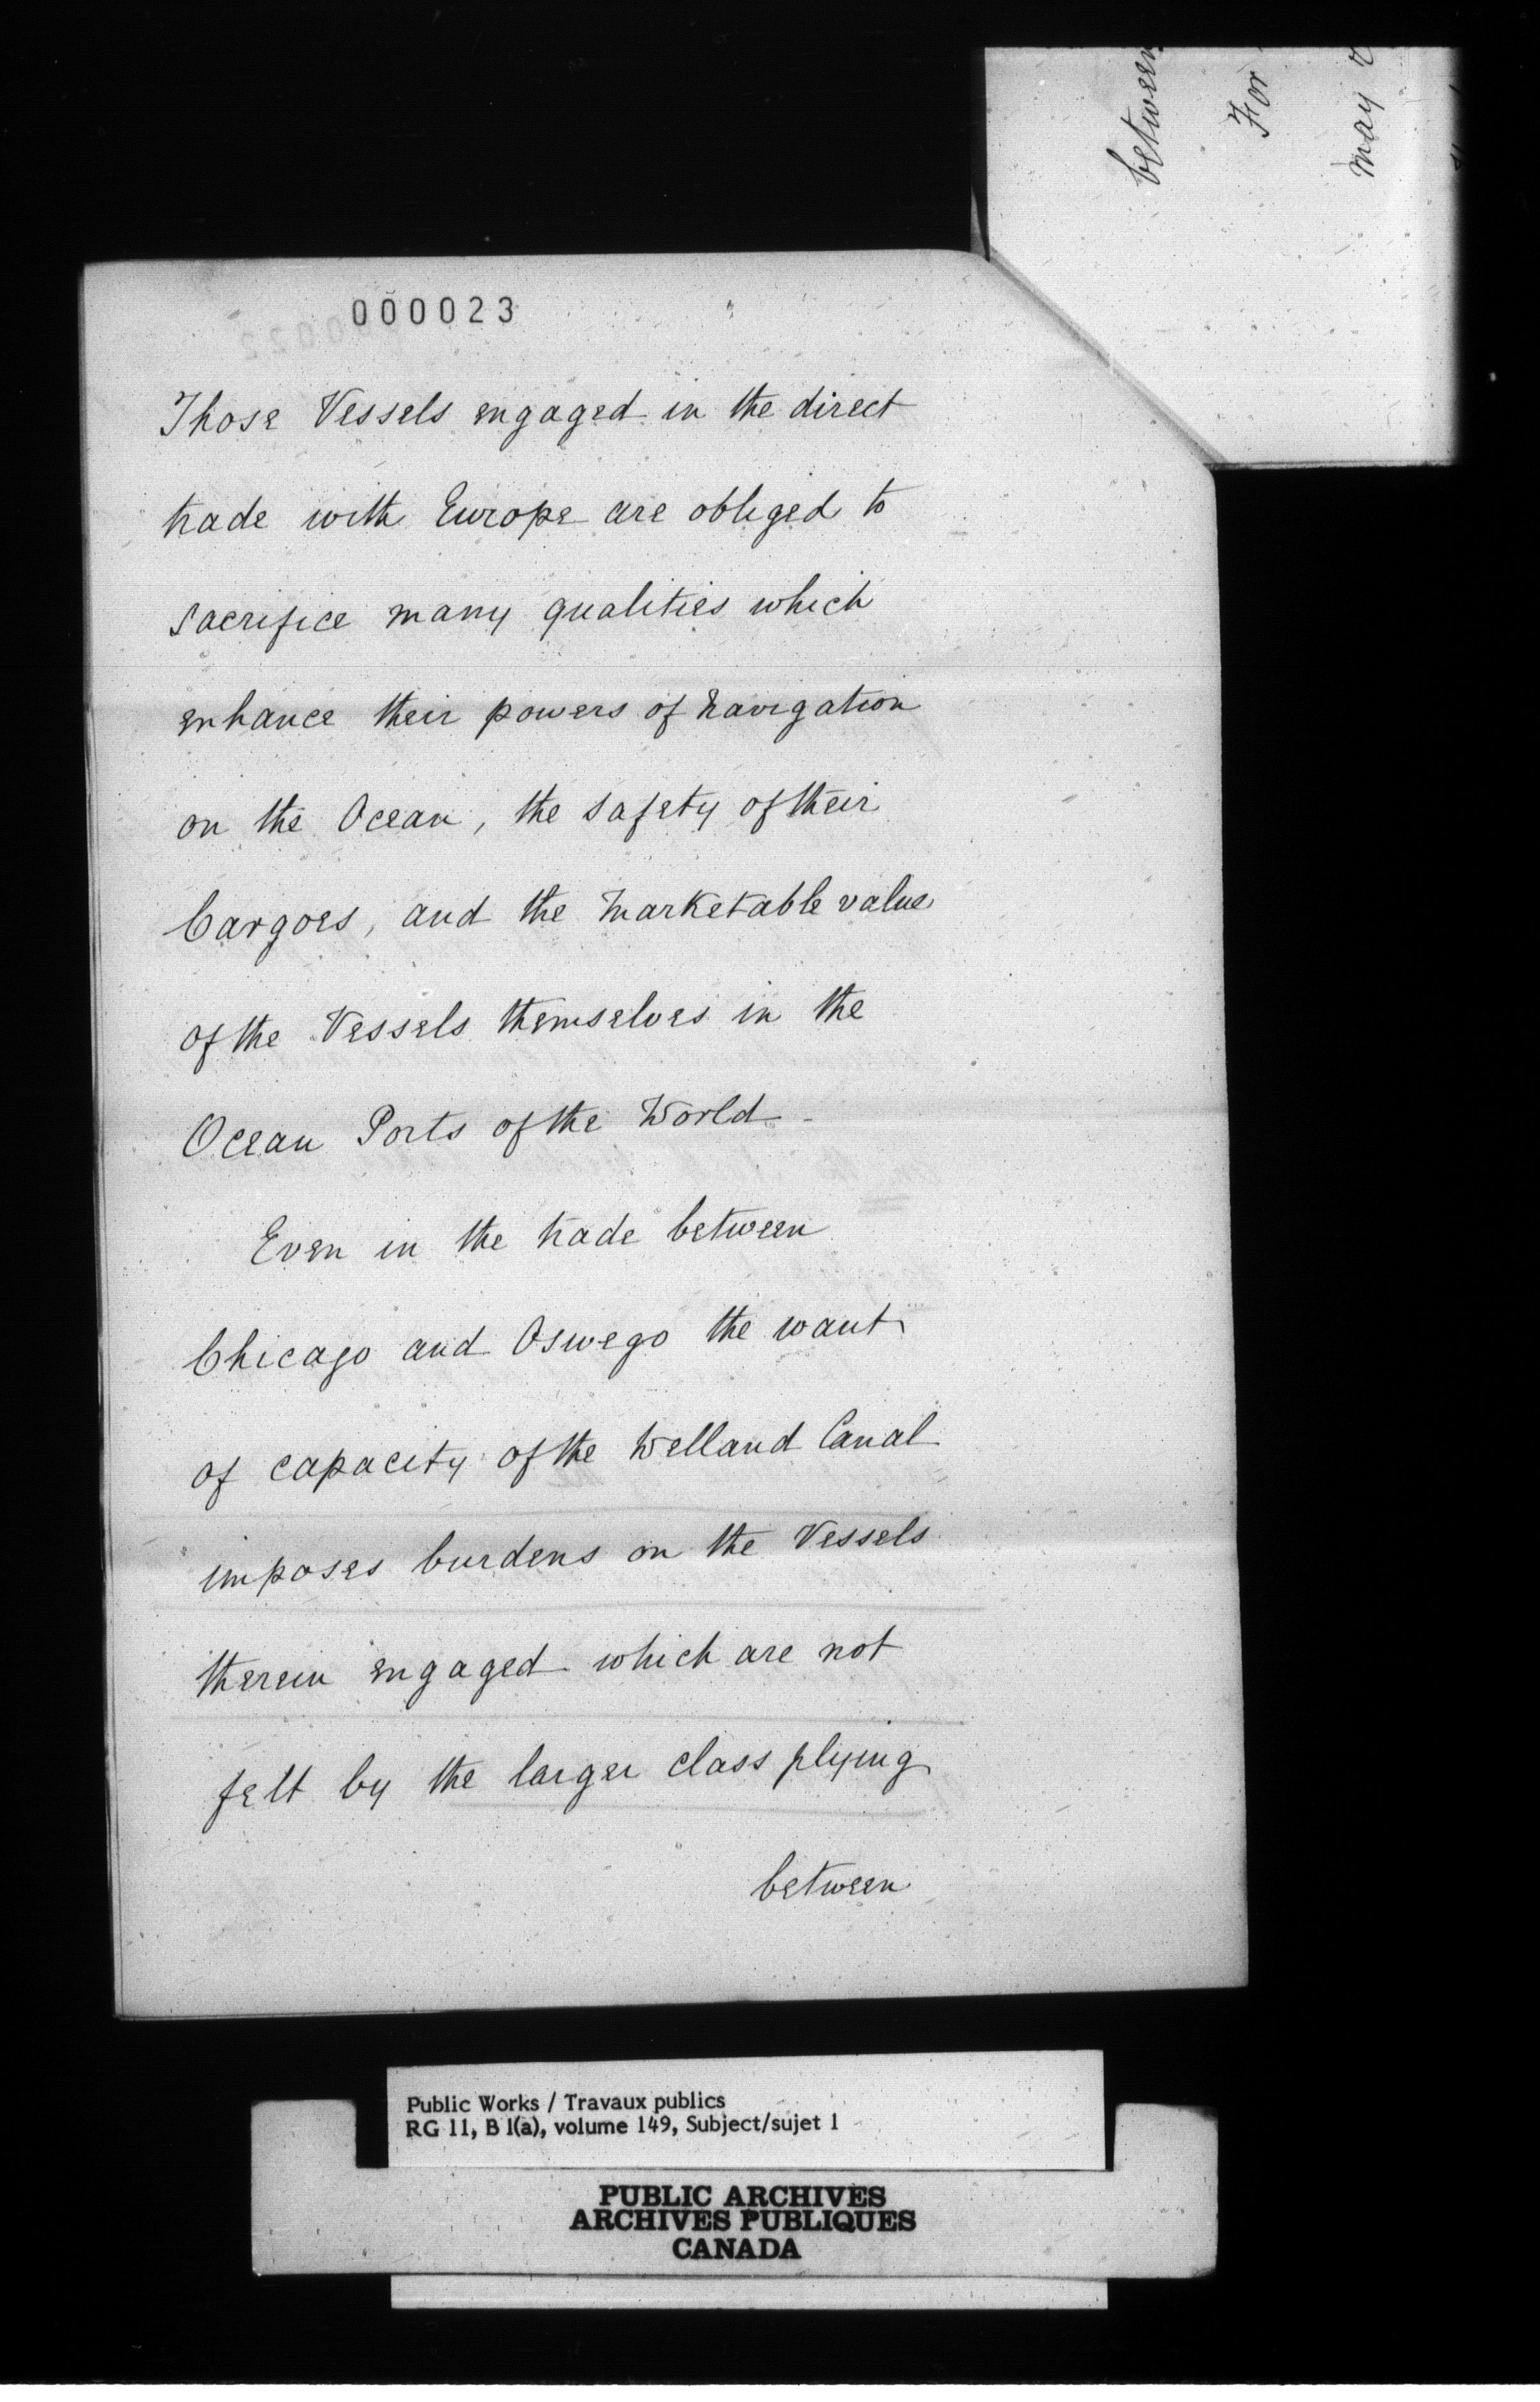 between
For
may
000023
Those Vessels engaged in the direct
trade with Europe are obliged to
sacrifice many qualities which
enhance their powers of navigation
on the Ocean, the safety of their
Cargoes, and the marketable value
of the Vessels themselves in the
Ocean Ports of the World -
Even in the trade between
Chicago and Oswego the want
of capacity of the Welland Canal
imposes burdens on the Vessels
therein engaged which are not
felt by the larger class plying
between
Public Works / Travaux publics
RG 11, B 1(a), volume 149, Subject/sujet 1
PUBLIC ARCHIVES
ARCHIVES PUBLIQUES
CANADA